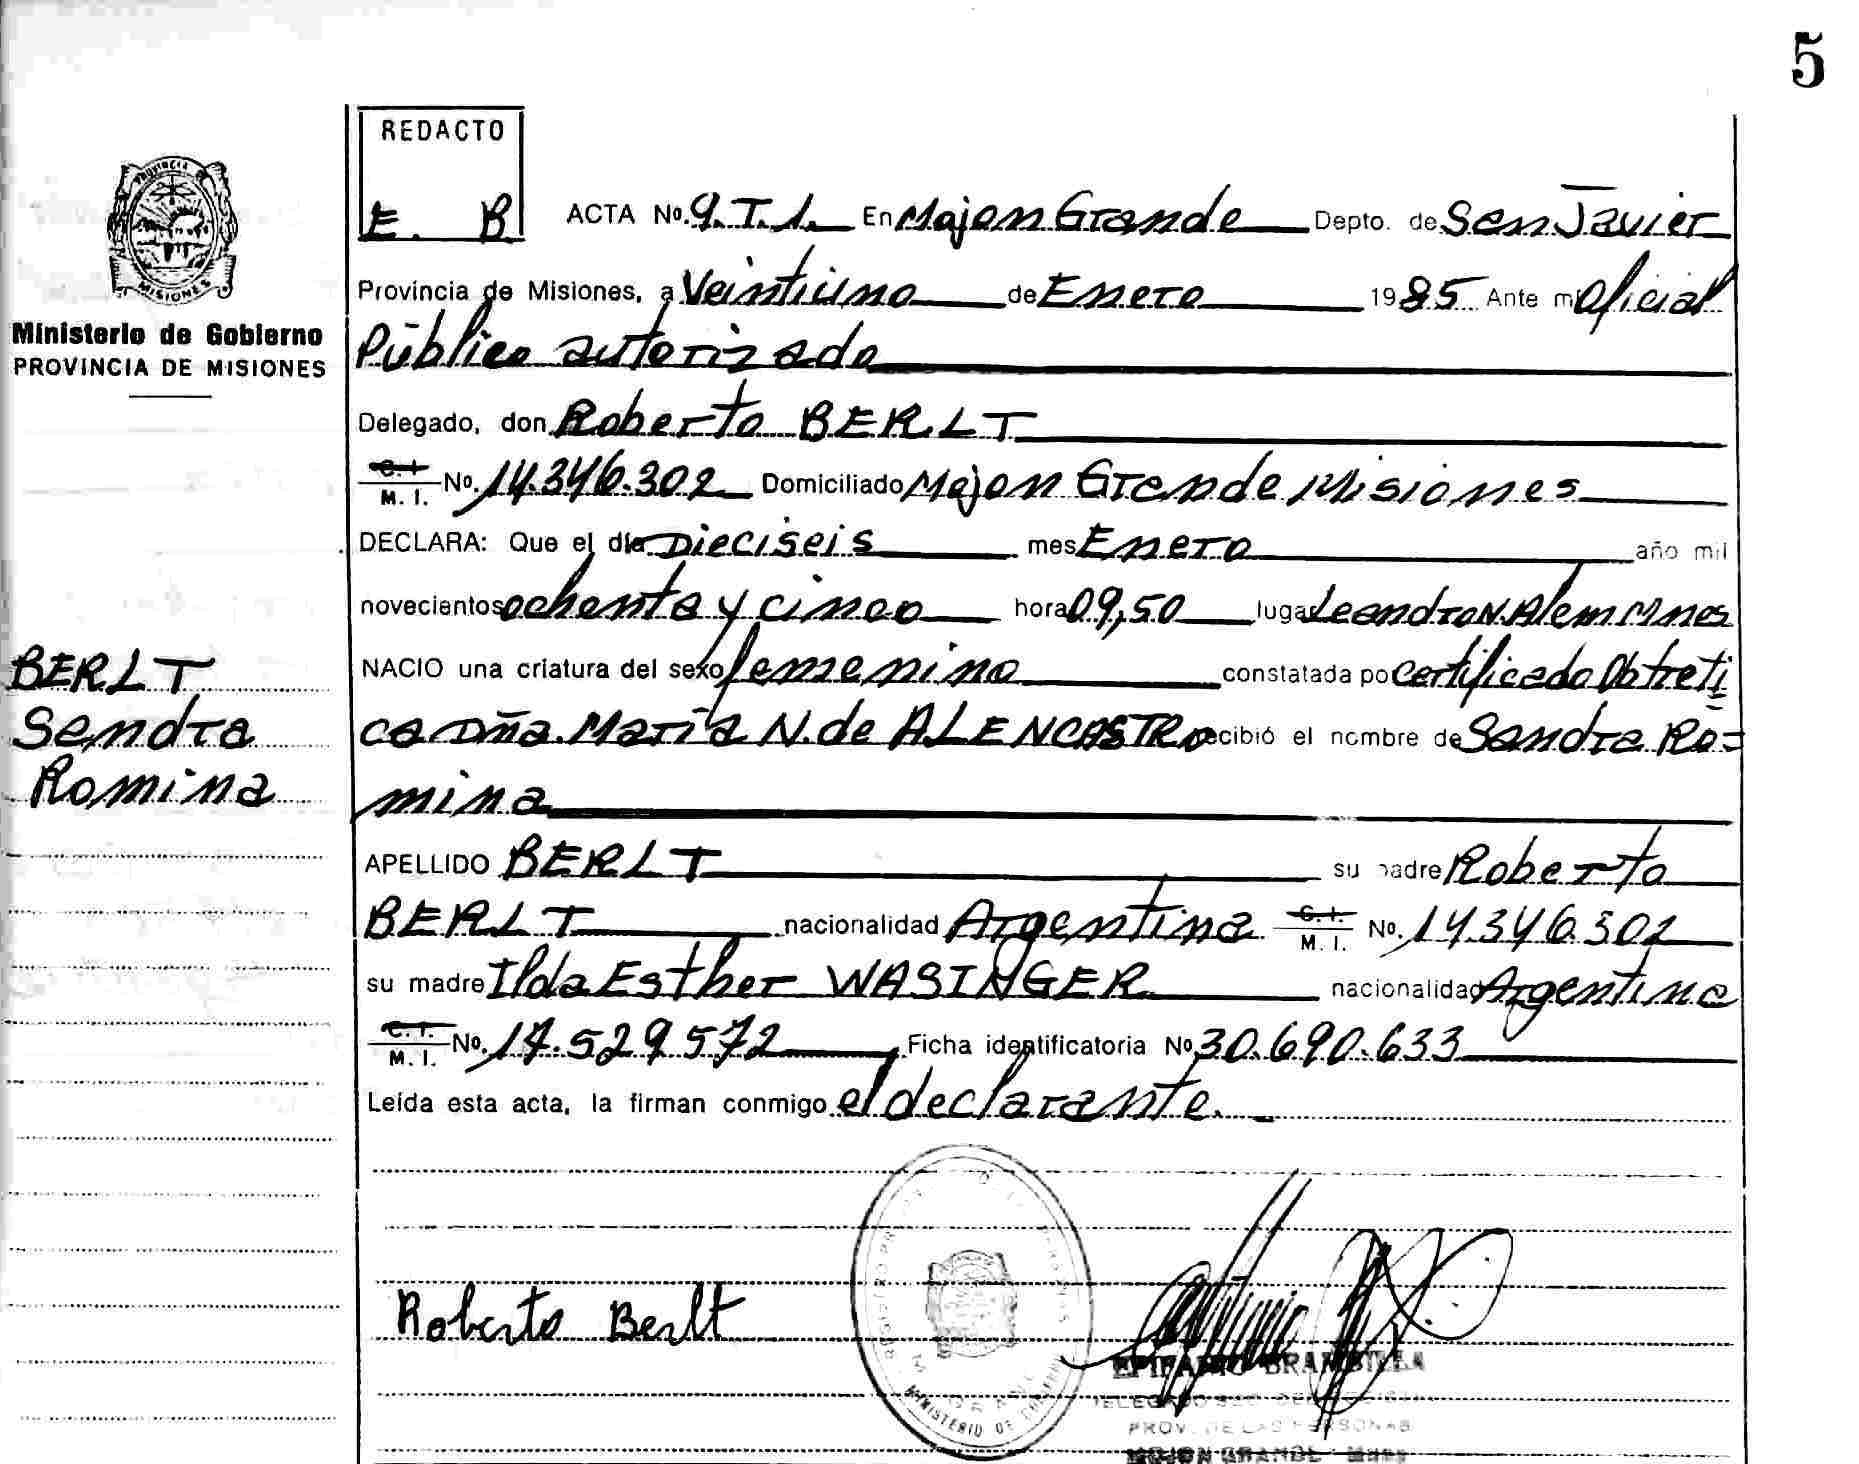 5
REDACTO
E. B.
ACTA Nº. 9.T.1. En Mojon Grande Depto. de San Javier
Provincia de Misiones, a Veintiuno de Enero 1985 Ante mi Oficial
Público autorizado
Ministerio de Gobierno
PROVINCIA DE MISIONES
Delegado, don Roberto BERLT
C. I. M. I. Nº. 14.346.302 Domiciliado Mojon Grande Misiones
DECLARA: Que el día Dieciseis mes Enero año mil
novecientos ochenta y cinco hora 09,50 lugar Leandro N. Alem Mnes
NACIO una criatura del sexo femenino constatada por Certificado Obtreti
ca Dña. María N. de ALENCASTRO recibió el nombre de Sandra Ro=
mina
BERLT
Sandra
Romina
APELLIDO BERLT su padre Roberto
BERLT nacionalidad Argentina C. I. M. I. Nº. 14.346.302
su madre Ilda Esther WASINGER nacionalidad Argentina
C. I. M. I. Nº. 17.529.572 Ficha identificatoria Nº 30.690.633
Leída esta acta, la firman conmigo el declarante.
Roberto Berlt
MINISTERIO DE
BRAMBILLA
DELEGADO
PROV. DE LAS PERSONAS
MOJON GRANDE - Mnes